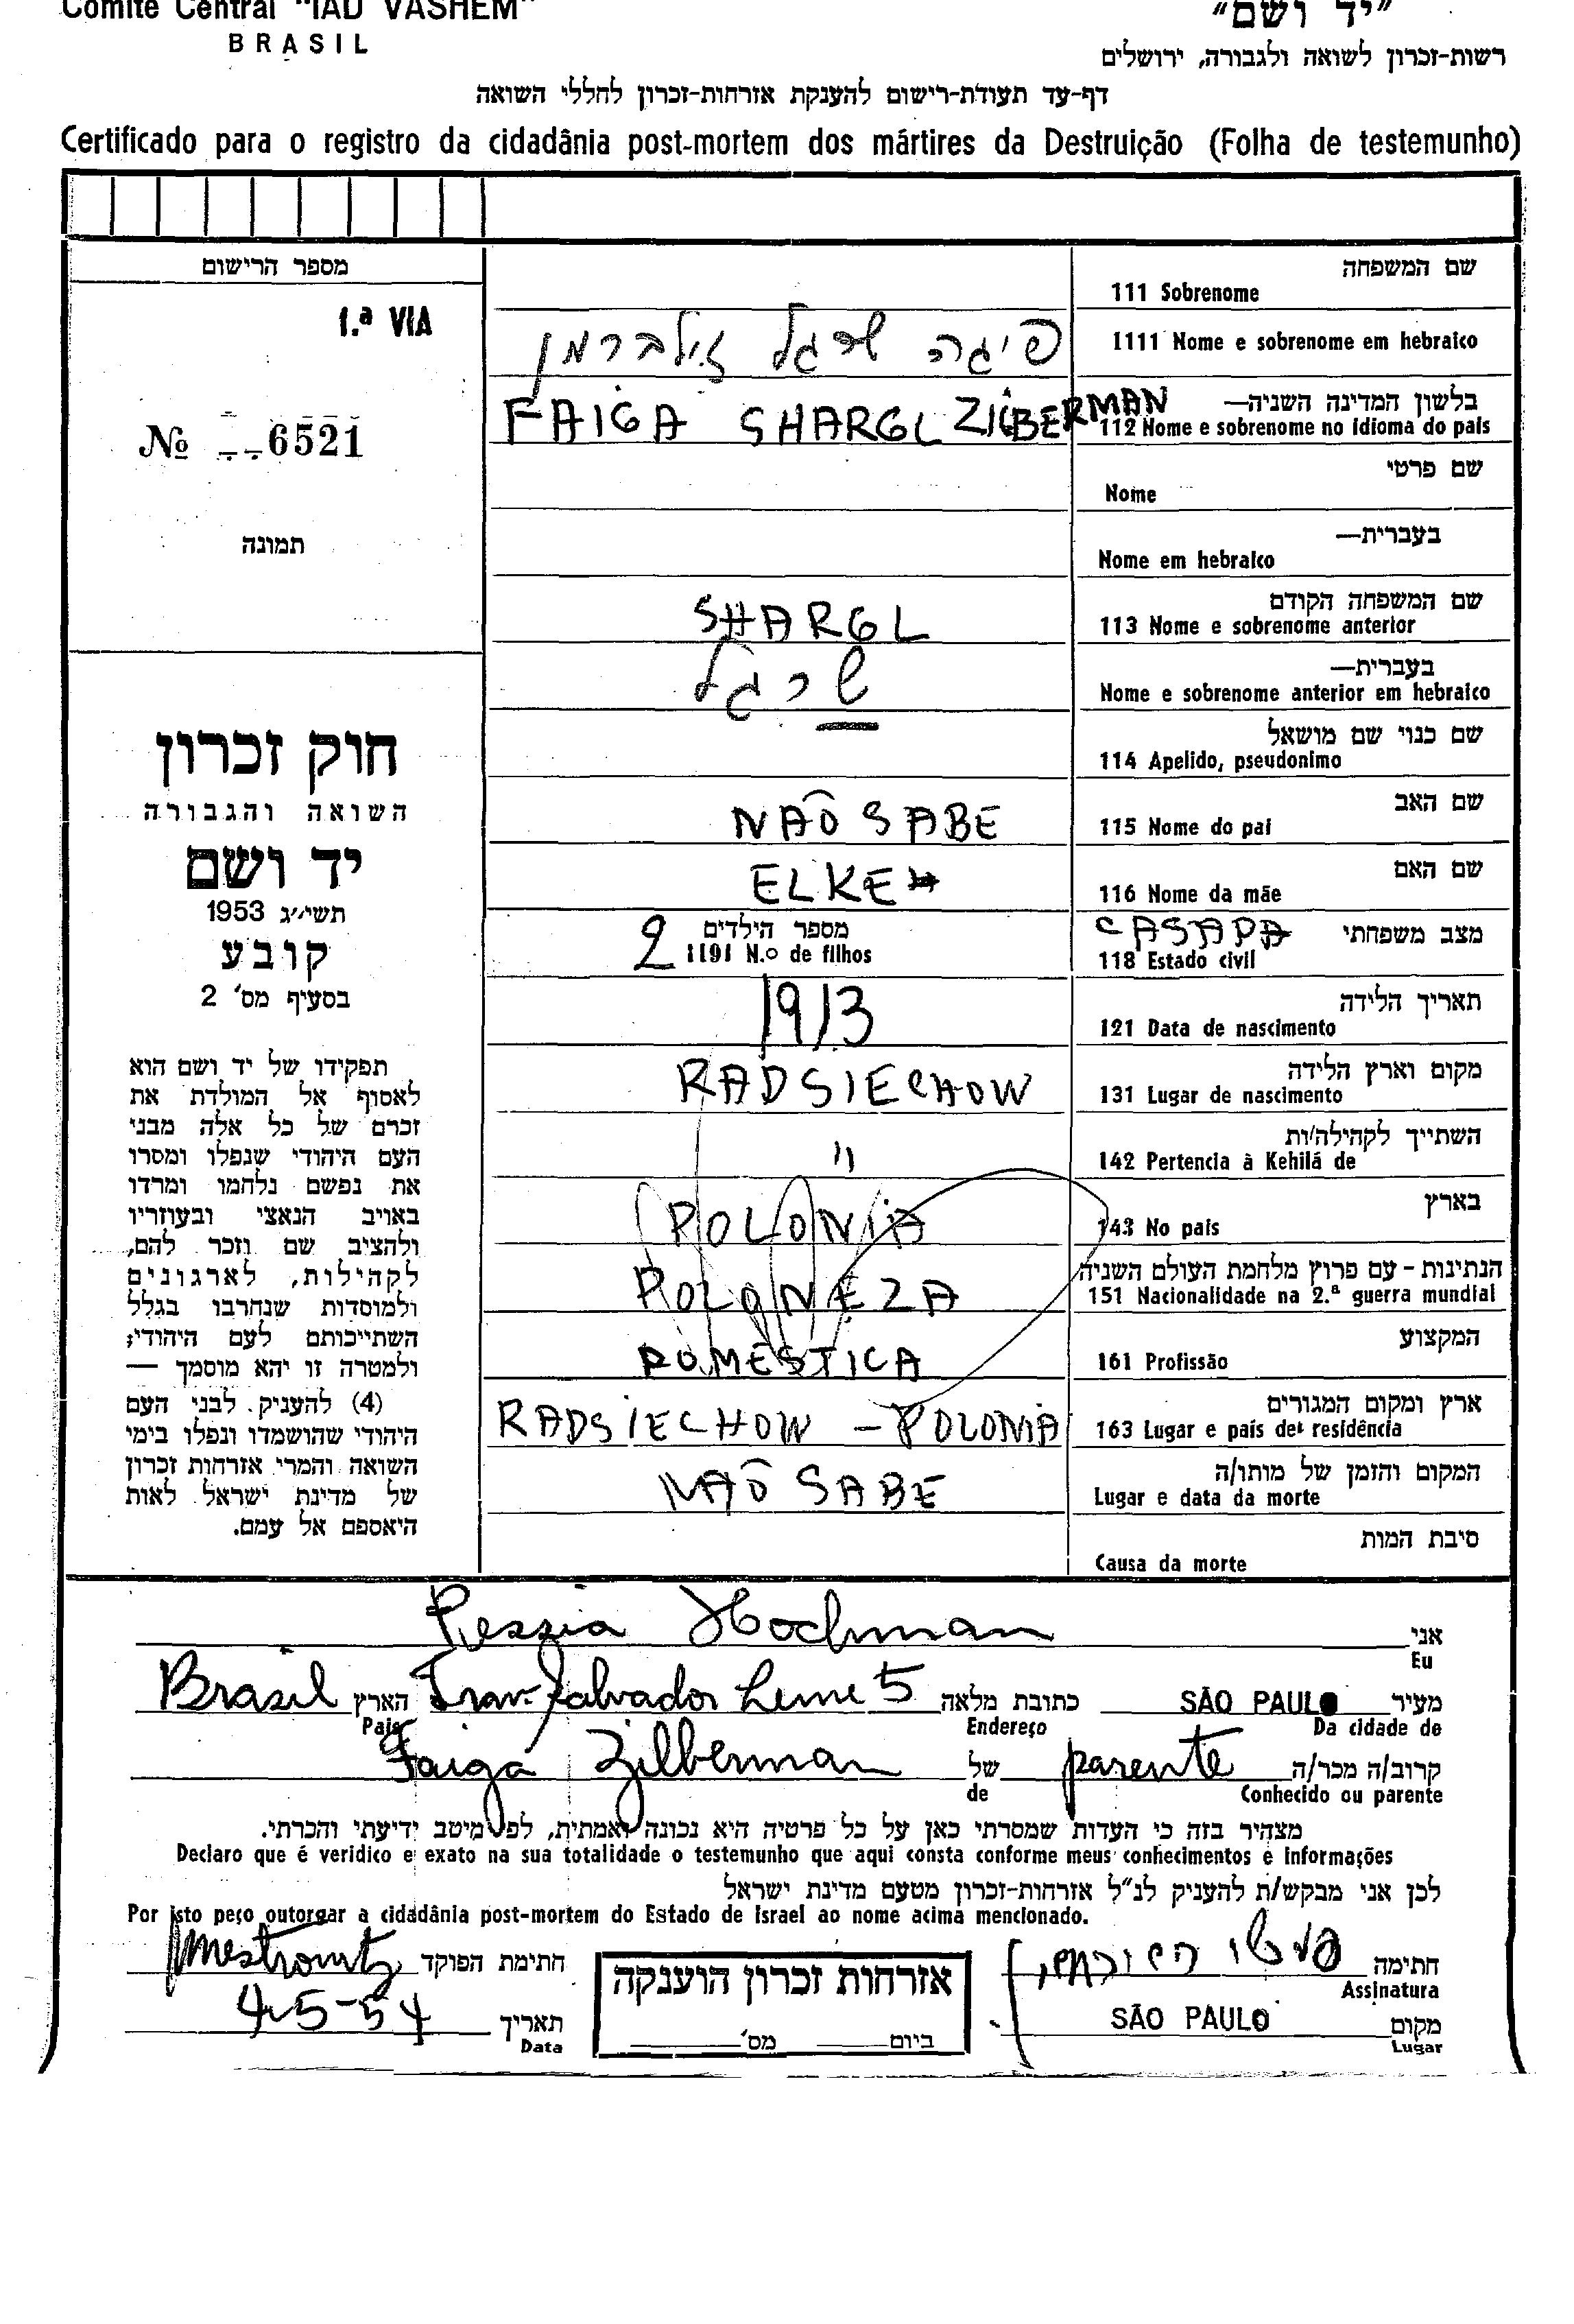 Comité Central "IAD VASHEM"
BRASIL
"יד ושם"
רשות-זכרון לשואה ולגבורה, ירושלים
דף-עד תעודת-רישום להענקת אזרחות-זכרון לחללי השואה
Certificado para o registro da cidadânia post-mortem dos mártires da Destruição (Folha de testemunho)
מספר הרישום
1.ª VIA
№ 6521
תמונה
חוק זכרון
השואה והגבורה
יד ושם
תשי״ג 1953
קובע
בסעיף מס' 2
תפקידו של יד ושם הוא
לאסוף אל המולדת את
זכרם של כל אלה מבני
העם היהודי שנפלו ומסרו
את נפשם נלחמו ומרדו
באויב הנאצי ובעוזריו
ולהציב שם וזכר להם,
לקהילות, לארגונים
ולמוסדות שנחרבו בגלל
השתייכותם לעם היהודי;
ולמטרה זו יהא מוסמך —
(4) להעניק לבני העם
היהודי שהושמדו ונפלו בימי
השואה והמרי אזרחות זכרון
של מדינת ישראל לאות
היאספם אל עמם.
שם המשפחה
111 Sobrenome
פיגה שרגל זילברמן
1111 Nome e sobrenome em hebraico
בלשון המדינה השניה—
FAIGA SHARGL ZILBERMAN
112 Nome e sobrenome no idioma do país
שם פרטי
Nome
בעברית—
Nome em hebraico
שם המשפחה הקודם
SHARGL
113 Nome e sobrenome anterior
בעברית—
שרגל
Nome e sobrenome anterior em hebraico
שם כנוי שם מושאל
114 Apelido, pseudonimo
שם האב
NAÕ SABE
115 Nome do pai
שם האם
ELKE
116 Nome da mãe
מצב משפחתי CASADA
118 Estado civil
מספר הילדים
2 1191 N.o de filhos
תאריך הלידה
1913
121 Data de nascimento
מקום וארץ הלידה
RADSIECHOW
131 Lugar de nascimento
השתייך לקהילה/ות
"
142 Pertencia à Kehilá de
בארץ
POLONIA
143 No país
הנתינות - עם פרוץ מלחמת העולם השניה
POLONEZA
151 Nacionalidade na 2.ª guerra mundial
המקצוע
DOMESTICA
161 Profissão
ארץ ומקום המגורים
RADSIECHOW - POLONIA
163 Lugar e país de residência
המקום והזמן של מותו/ה
NAÕ SABE
Lugar e data da morte
סיבת המות
Causa da morte
אני Pessia Hochman
Eu
מעיר SÃO PAULO כתובת מלאה Trav. Salvador Leme 5 הארץ Brasil
Da cidade de Endereço País
קרוב/ה מכר/ה parente של Faiga Zilberman
Conhecido ou parente de
מצהיר בזה כי העדות שמסרתי כאן על כל פרטיה היא נכונה ואמתית, לפי מיטב ידיעתי והכרתי.
Declaro que é veridico e exato na sua totalidade o testemunho que aqui consta conforme meus conhecimentos e informações
לכן אני מבקש/ת להעניק לנ"ל אזרחות-זכרון מטעם מדינת ישראל
Por isto peço outorgar a cidadânia post-mortem do Estado de Israel ao nome acima mencionado.
חתימה
Assinatura
חתימת הפוקד
אזרחות זכרון הוענקה
ביום מס'
מקום SÃO PAULO
Lugar
תאריך 4-5-54
Data